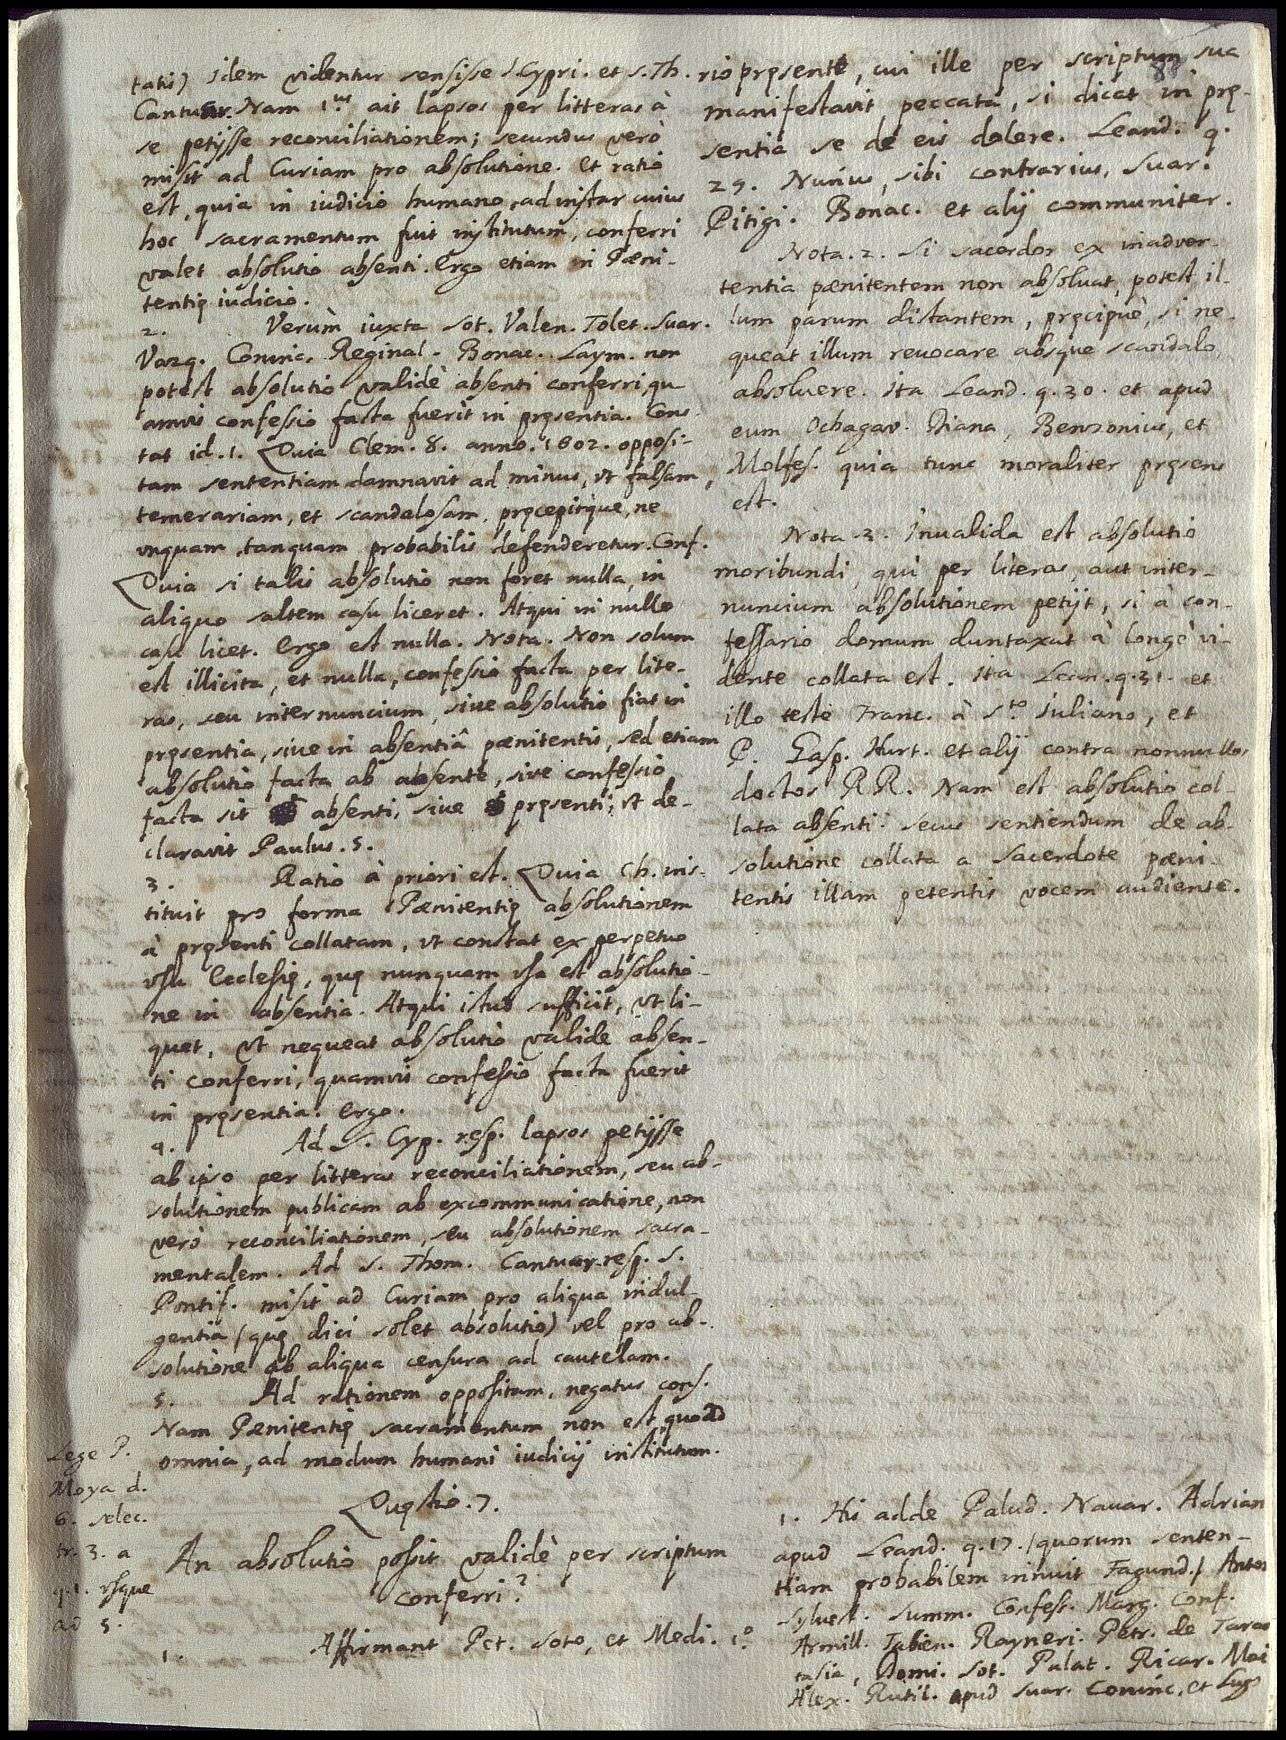 88
tatis) idem videntur sensisse S Cypri. et S. Th.
Cantuar. Nam 1us ait lapsos per litteras à
se petijsse reconciliationem; secundus verò
misit ad Curiam pro absolutione. Et ratio
est, quia in iudicio humano, ad instar cuius
hoc sacramentum fuit institutum, conferri
valet absolutio absenti. Ergo etiam in Pæni-
tentię iudicio.
2. Verùm iuxta Sot. Valen. Tolet. Suar.
Vazq. Coninc. Reginal. Bonac. Laym. non
potest absolutio validè absenti conferri, qu
amvis confessio facta fuerit in pręsentia. Cons-
tat id. 1. Quia Clem. 8. anno. 1602. opposi-
tam sententiam damnavit ad minus, vt falsam,
temerariam, et scandalosam, pręcepitque, ne
vnquam, tanquam probabilis defenderetur. Conf.
Quia si talis absolutio non foret nulla, in
aliquo saltem casu liceret. Atqui in nullo
casu licet. Ergo est nulla. Nota. Non solum
est illicita, et nulla, confessio facta per lite-
ras, seu internuncium, sive absolutio fiat in
pręsentia, sive in absentiâ pænitentis, sed etiam
absolutio facta ab absente, sive confessio
facta sit absenti, sive pręsenti; vt de-
claravit Paulus. 5.
3. Ratio à priori est. Quia Ch. ins-
tituit pro forma Pænitentię absolutionem
à pręsenti collatam, vt constat ex perpetuo
vsu Ecclesię, quę nunquam vsa est absolutio-
ne in absentia. Atqui istud sufficit, vt li-
quet, vt nequeat absolutio valide absen-
ti conferri, quamvis confessio facta fuerit
in pręsentia. Ergo.
4. Ad S. Cyp. resp. lapsos petijsse
ab ipso per litteras reconciliationem, seu ab-
solutionem publicam ab excommunicatione, non
verò reconciliationem, seu absolutionem sacra-
mentalem. Ad S. Thom. Cantuar. resp. S.
Pontif. misit ad Curiam pro aliqua indul-
gentia (quę dici solet absolutio) vel pro ab-
solutione ab aliqua censura ad cautelam.
5. Ad rationem oppositam, negatus cons.
Nam Pænitentię sacramentum non est, quoad
omnia, ad modum humani iudicij institutum.
Lege P.
Moya d.
6. selec.
tr. 3. a
q. 1. vsque
ad 5.
Quęstio. 7.
An absolutio possit validè per scriptum
conferri?
1. Affirmant Pet. Soto, et Medi. 1.o
rio pręsente, cui ille per scriptum sua
manifestavit peccata, si dicat in prę-
sentia se de eis dolere. Leand. q.
29. Nunus, sibi contrarius, Suar.
Pitigi. Bonac. et alij communiter.
Nota. 2. Si sacerdos ex inadver-
tentia pænitentem non absoluat, potest il-
lum parum distantem, pręcipuè, si ne-
queat illum revocare absque scandalo
absoluere. Ita Leand. q. 30. et apud
eum Ochagav. Diana, Benzonius, et
Molfes. quia tunc moraliter pręsens
est.
Nota. 3. Invalida est absolutio
moribundi, qui per literas, aut inter-
nuncium absolutionem petijt, si à con-
fessario domum duntaxat à longè vi-
dente collata est. Ita Lean. q. 31. et
illo teste Franc. à S.to Iuliano, et
P. Gasp. Hurt. et alij contra nonnullos
doctos RR. Nam est absolutio col-
lata absenti. secus sentiendum de ab-
solutione collata a Sacerdote pæni-
tentis illam petentis vocem audiente.
1. His adde Palud. Navar. Adrian
apud Leand. q. 17. (quorum senten-
tiam probabilem innuit Fagund.)
Sylvest. summ. Confess. Marg. Conf.
Armill. Tabien. Rayneri. Petr. de Taran
tasia, Domi. Sot. Palat. Ricar.
Alex. Rutil. apud Suar. Coninc. et Lug